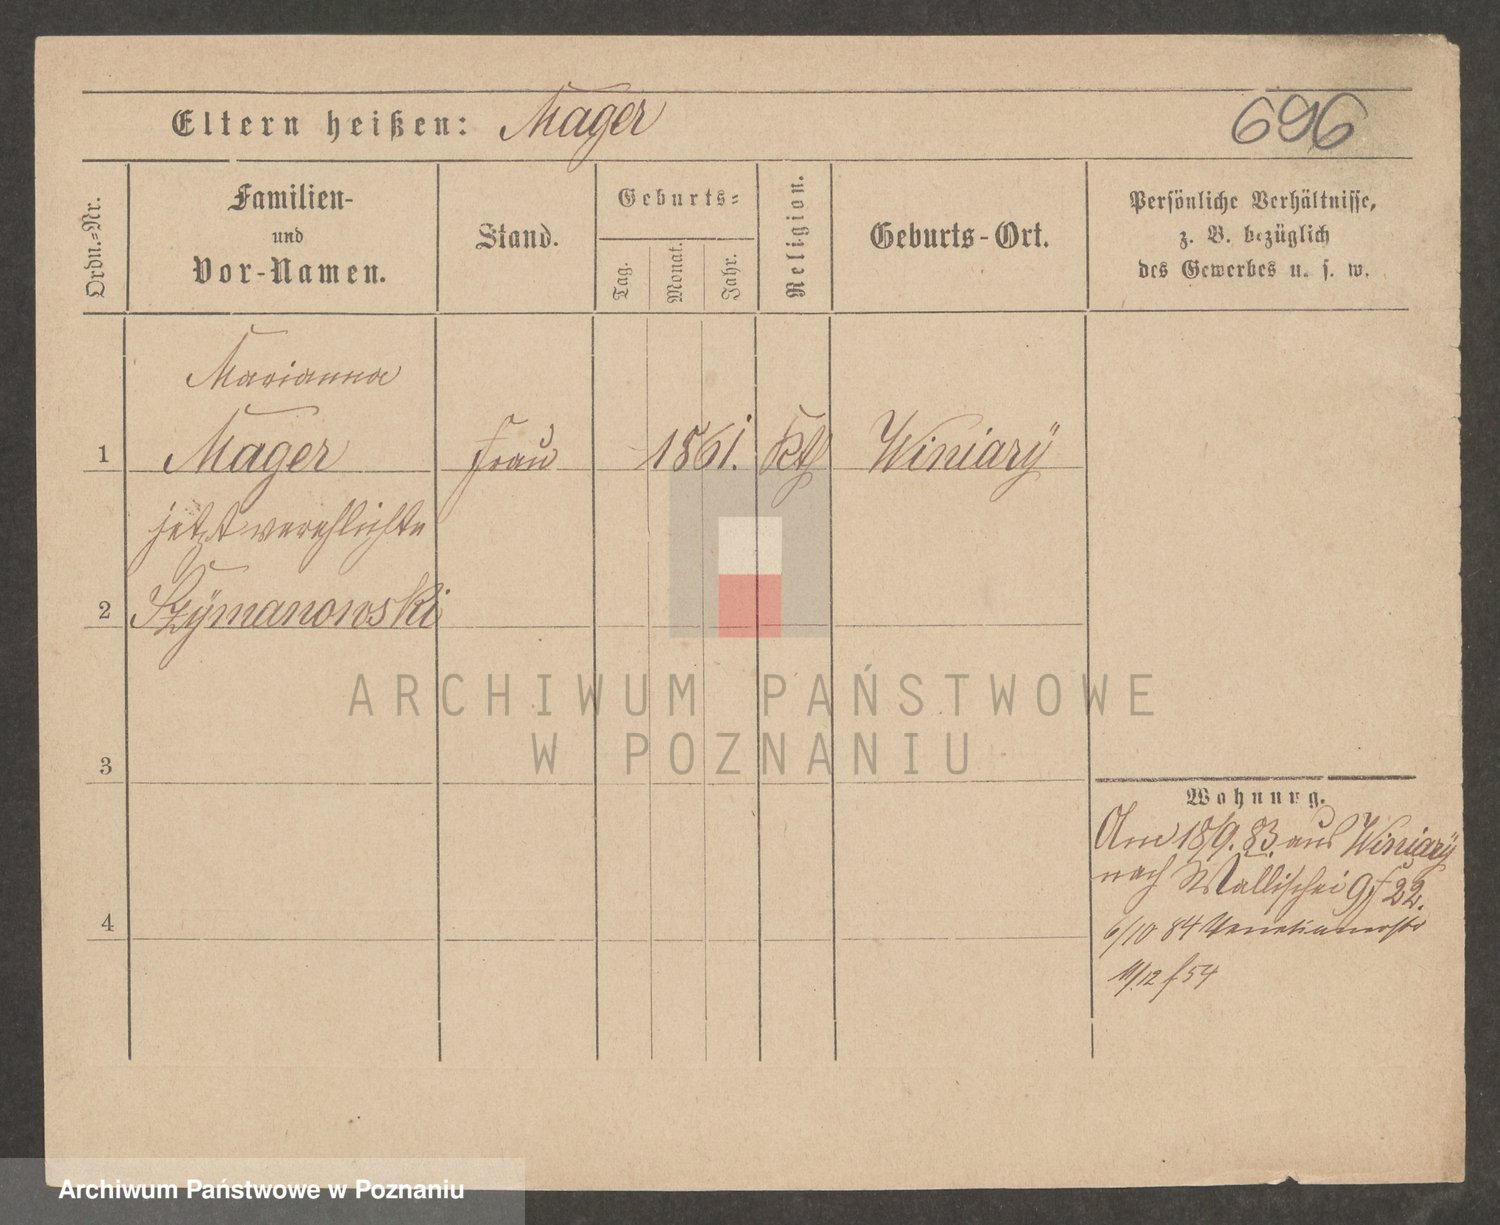 Eltern heißen: Mager
696
Ordn.=Nr.
Familien-
und
Vor-Namen.
Stand.
Geburts=
Tag.
Monat.
Jahr.
Religion.
Geburts-Ort.
Persönliche Verhältnisse,
z. B. bezüglich
des Gewerbes u. s. w.
Marianna
1 Mager Frau 1861. Kth Winiarÿ
jetzt verehlichte
2 Szÿmanowski
3
4
Wohnung.
Am 18/9. 83. aus Winiarÿ
nach Wallischei 22.
6/10 84 Venetianerstr
11/12 f 54
ARCHIWUM PAŃSTWOWE
W POZNANIU
Archiwum Państwowe w Poznaniu